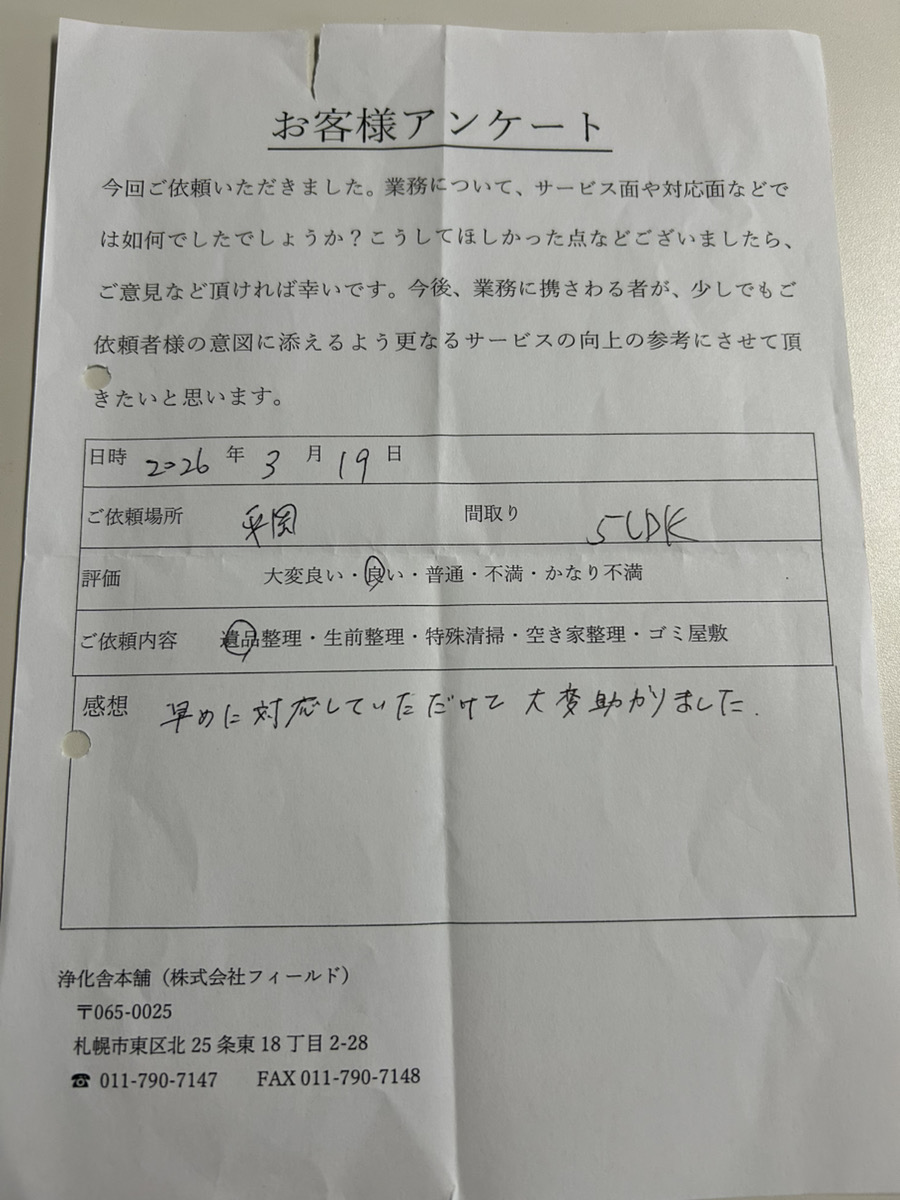 お客様アンケート
今回ご依頼いただきました。業務について、サービス面や対応面などで
は如何でしたでしょうか？こうしてほしかった点などございましたら、
ご意見など頂ければ幸いです。今後、業務に携さわる者が、少しでもご
依頼者様の意図に添えるよう更なるサービスの向上の参考にさせて頂
きたいと思います。
日時 2026 年 3 月 19 日
ご依頼場所 平岡 間取り 5LDK
評価 大変良い・良い・普通・不満・かなり不満
ご依頼内容 遺品整理・生前整理・特殊清掃・空き家整理・ゴミ屋敷
感想 早めに対応していただけて大変助かりました.
浄化舎本舗（株式会社フィールド）
〒065-0025
札幌市東区北 25 条東 18 丁目 2-28
☎ 011-790-7147 FAX 011-790-7148